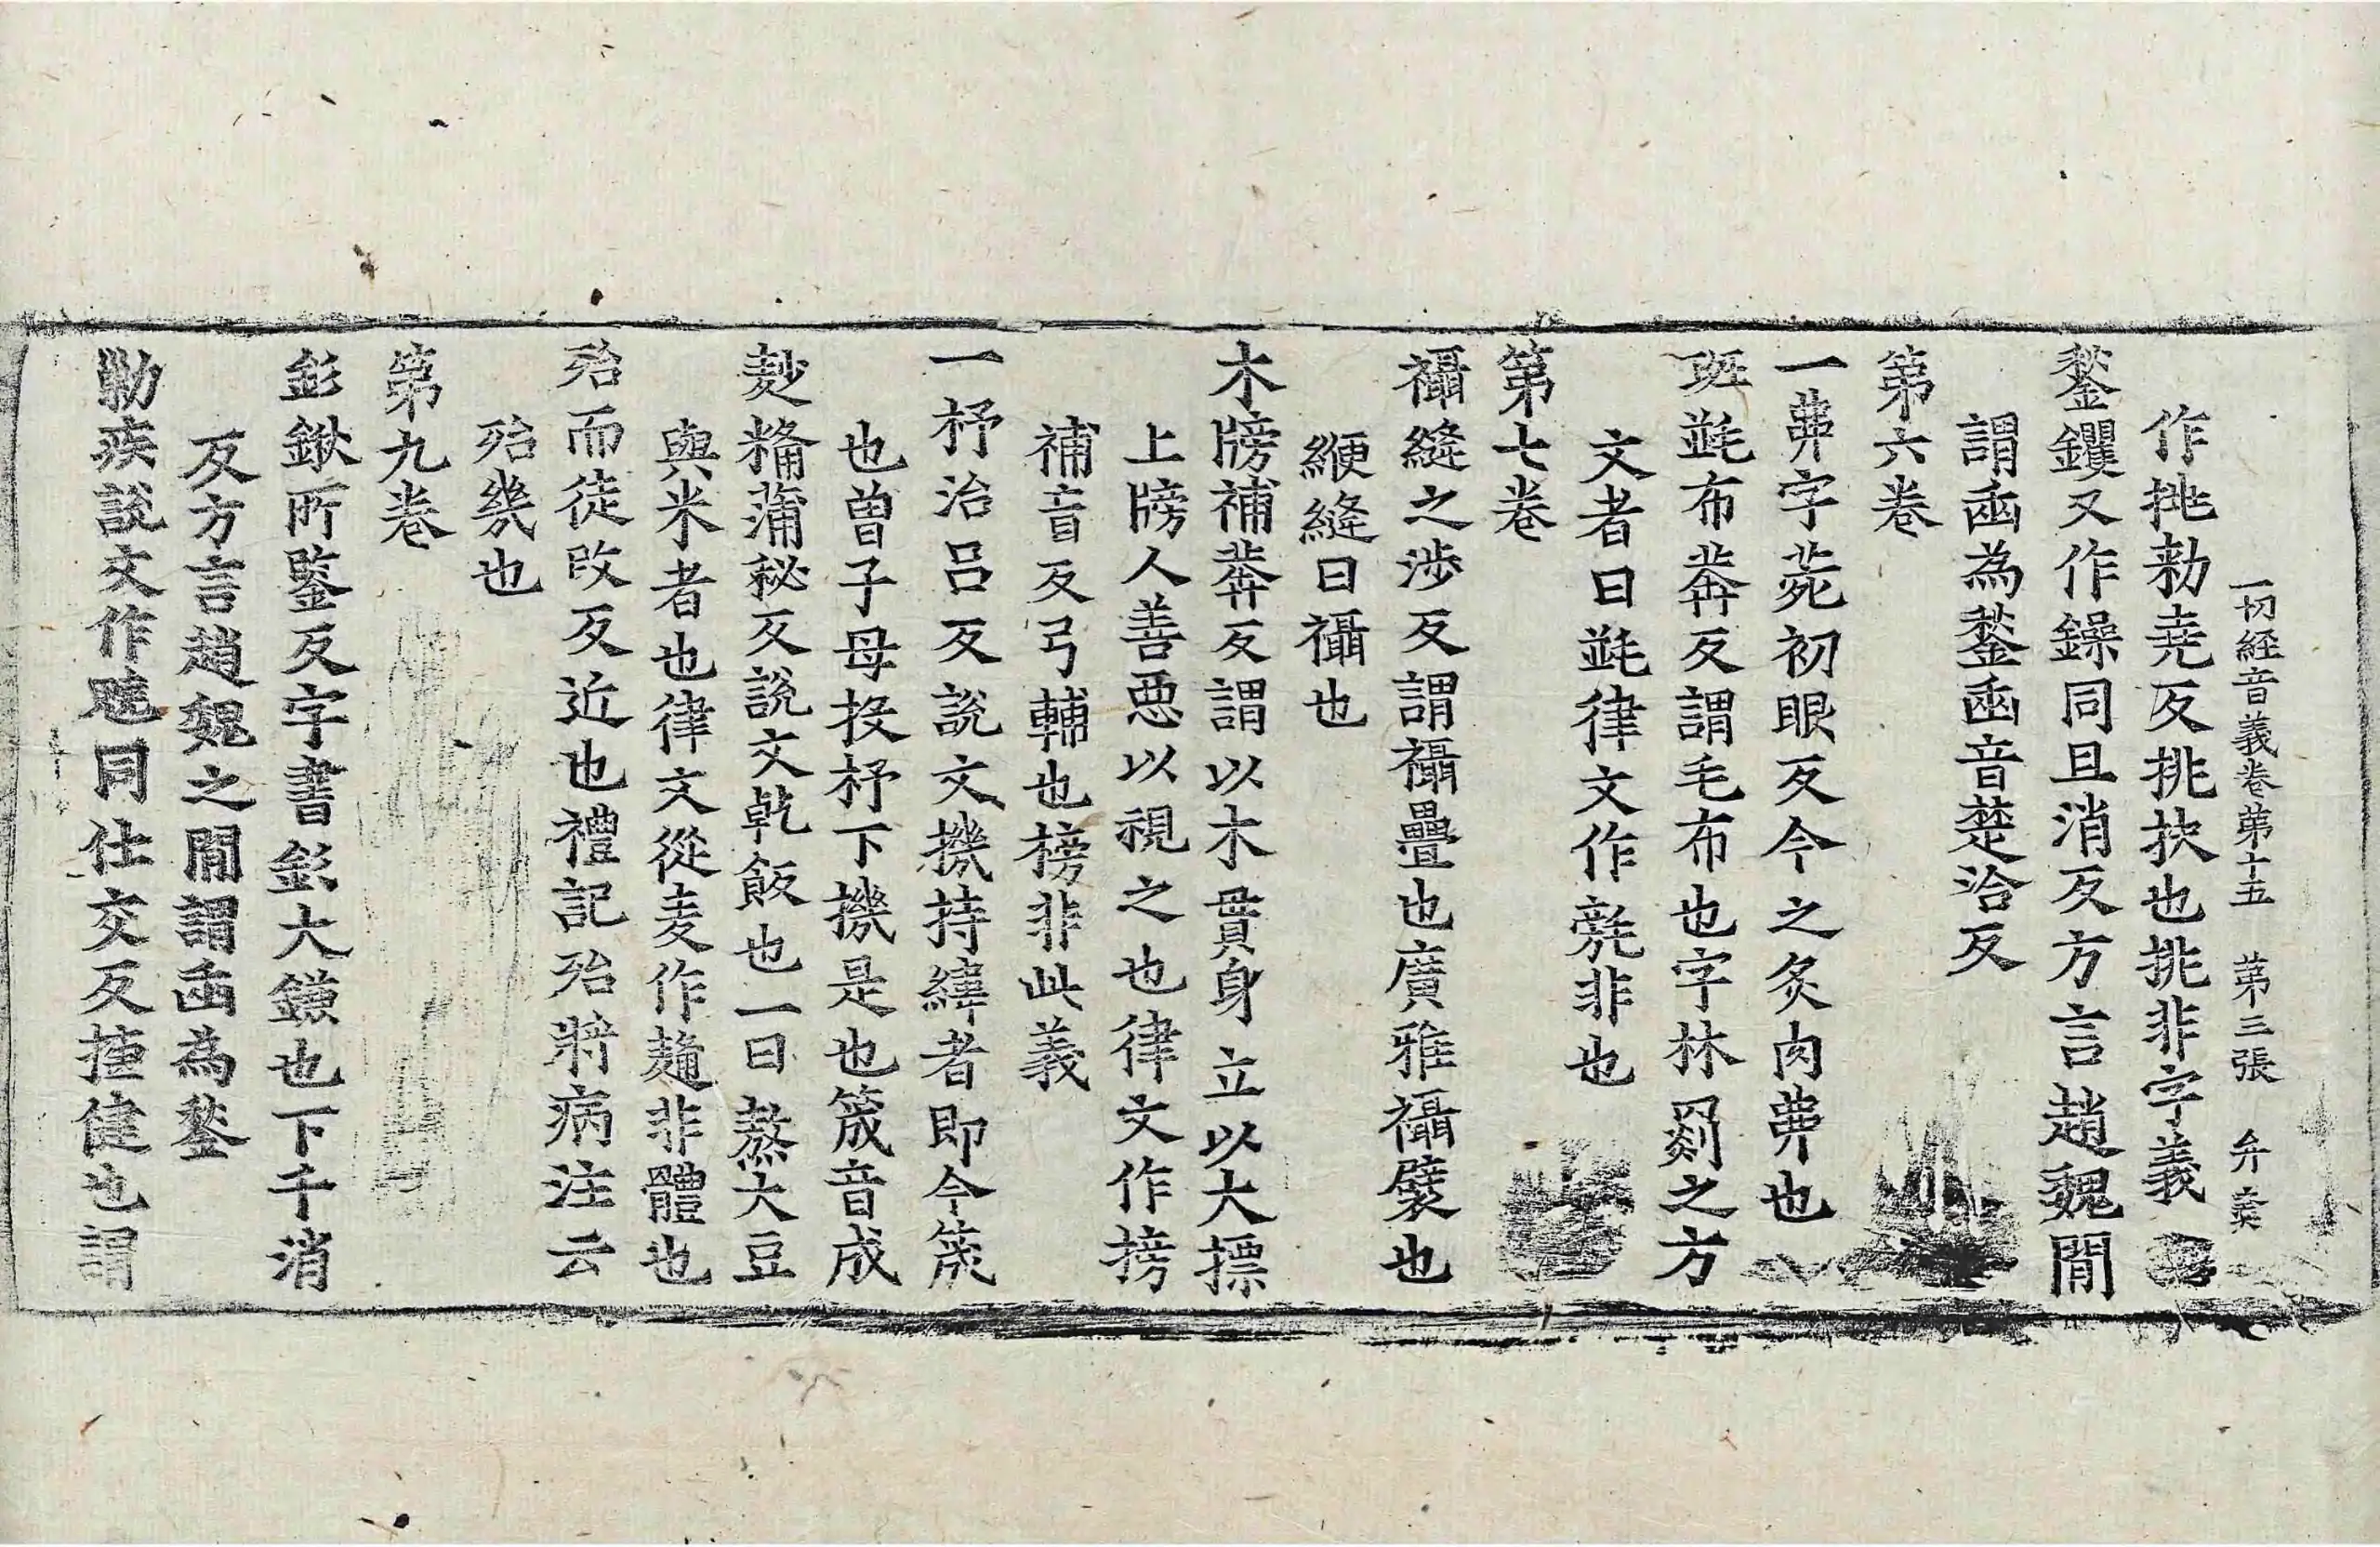 一切經音義卷第十五　第三張　弁
作挑勑堯反挑抉也挑非字義
鍫钁又作鏁同且消反方言趙魏閒
謂臿為鍫臿音楚洽反
第六卷
一弗字苑初眼反今之炙肉弗也
班㲲布莽反謂毛布也字林罽之方
文者曰㲲律文作㲝非也
第七卷
襵縫之渉反謂襵疊也廣雅襵襞也
緶縫曰襵也
木牓補莽反謂以木貫身立以大摽
上牓人善惡以視之也律文作搒
補盲反弓輔也榜非此義
一杼治呂反說文機持緯者即今筬
也曾子母投杼下機是也筬音成
麨糒蒲秘反說文乾飯也一曰熬大豆
與米者也律文從麦作䴺非體也
殆而徒改反近也禮記殆將病注云
殆幾也
第九卷
釤鍬所鑒反字書釤大鎌也下千消
反方言趙魏之閒謂臿為鍫
勦疾說文作趮同仕交反揵健也謂